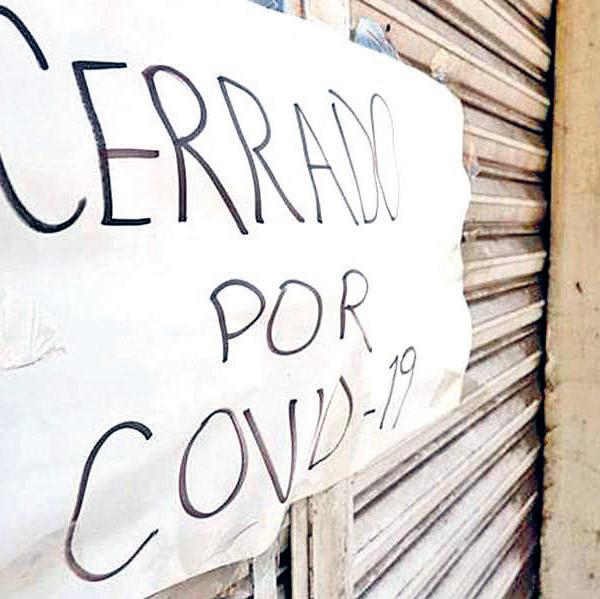 CERRADO
POR
COVD-19